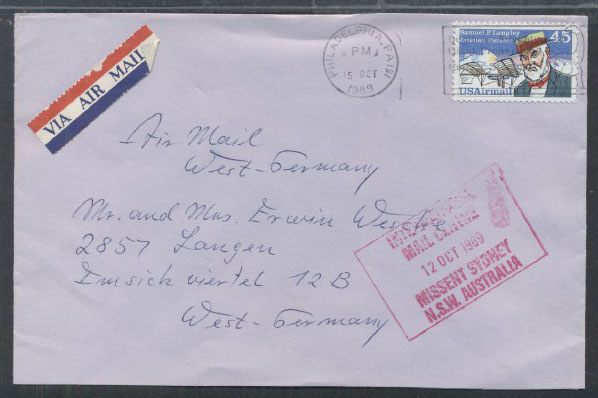 VIA AIR MAIL
PHILADELPHIA, PA 191
PM
5 OCT
1989
Samuel P. Langley
Aviation Pioneer
45
USAirmail
Air Mail
West-Germany
Mr. and Mrs. Erwin
2857 Langen
Imsick viertel 12 B
West-Germany
MAIL CENTRE
12 OCT 1989
MISSENT SYDNEY
N.S.W. AUSTRALIA